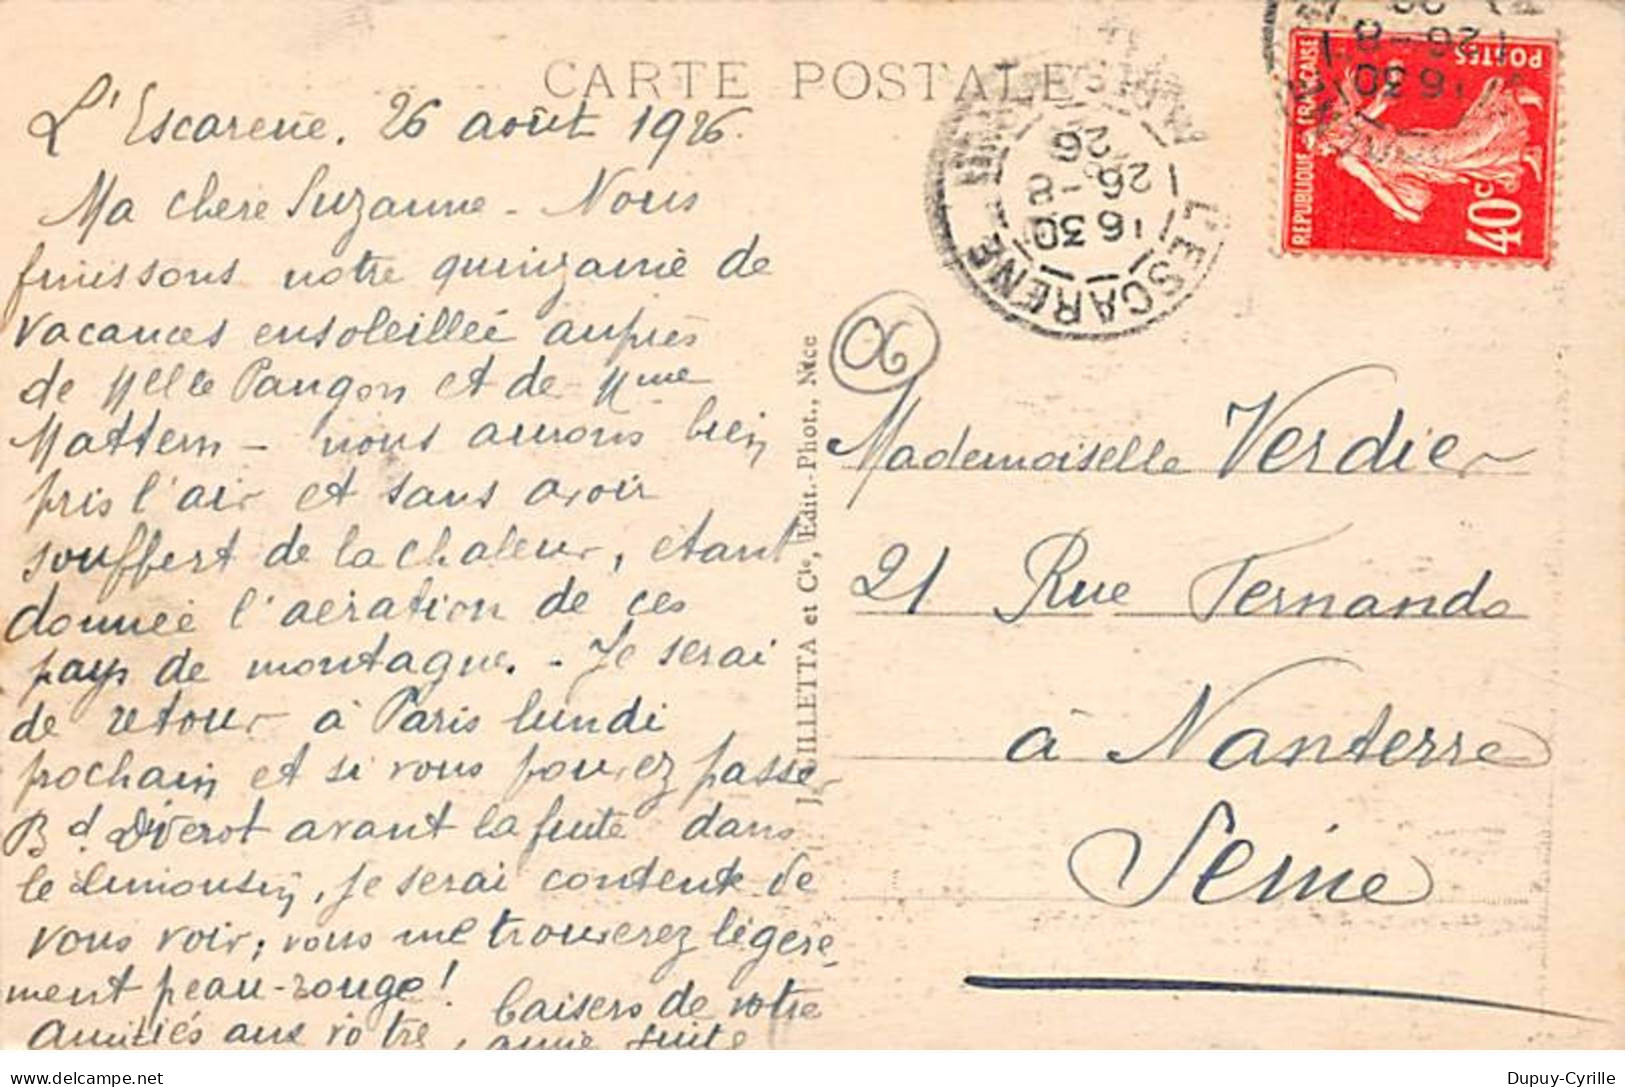 CARTE POSTALE
L'Escarene. 26 août 1926.
Ma chere Suzanne - Nous
finissons notre quinzaine de
vacances ensoleillée auprès
de Melle Paugon et de Mme
Mattern - nous aurons bien
pris l'air et sans avoir
souffert de la chaleur, etant
donnée l'aération de ces
pays de montague. - Je serai
de retour à Paris lundi
prochain et si vous pouvez passer
Bd Diderot avant la fuite dans
le Limousin, je serai contente de
vous voir; vous me trouverez légere,
ment peau-rouge!
amitiés aux votre,
baisers de votre
amie
J. GILLETTA et Cie, Edit.-Phot., Nice
06
Mademoiselle Verdier
21 Rue Fernando
à Nanterre
Seine
L'ESCARENE
16 30
26 - 8
26
REPUBLIQUE FRANÇAISE
POSTES
40c
16 30
26 - 8
delcampe.net
Dupuy-Cyrille